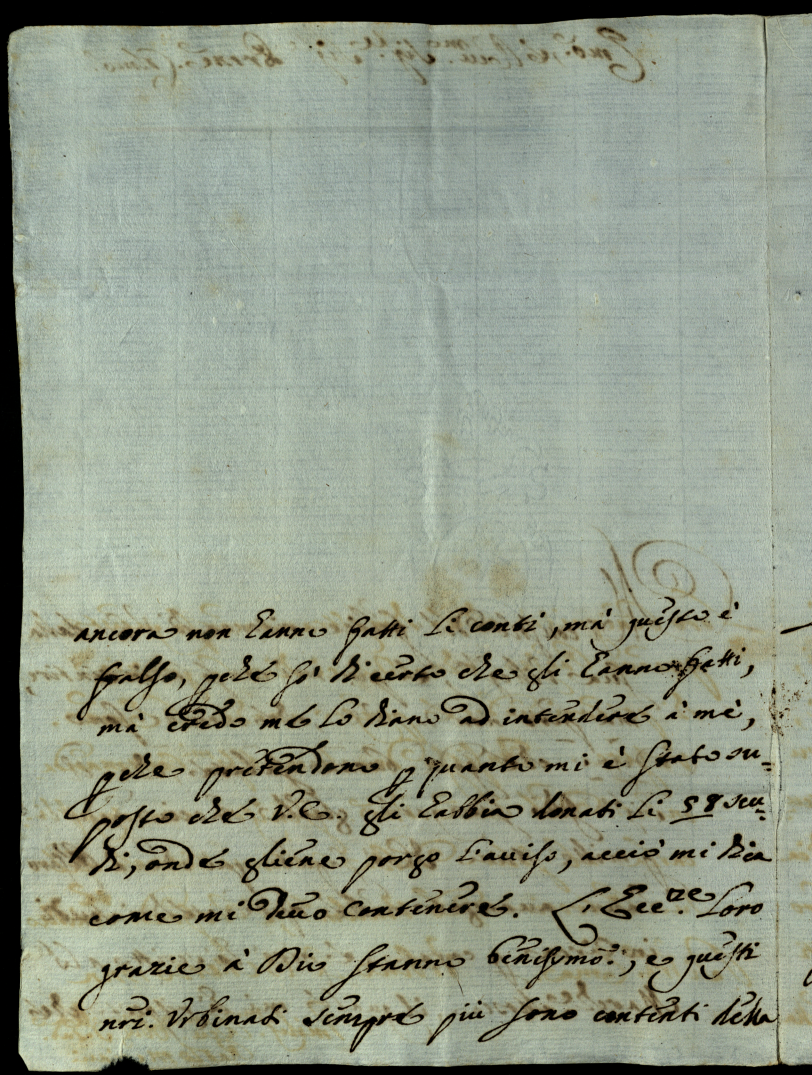 ancora non hanno fatti li conti, mà questo è
falso, pche sò di certo che gli hanno fatti,
mà credo me lo diano ad intendere à me,
pche pretendono p quanto mi è stato su=
posto che V.E. gli habbia donati li 58 scu=
di, onde gliene porgo l'auuiso, acciò mi dica
come mi deuo contenere. L'Ecc.ze Loro
grazie à Dio stanno beniss.mo, e questi
nri. Vrbinati sempre più sono contenti della